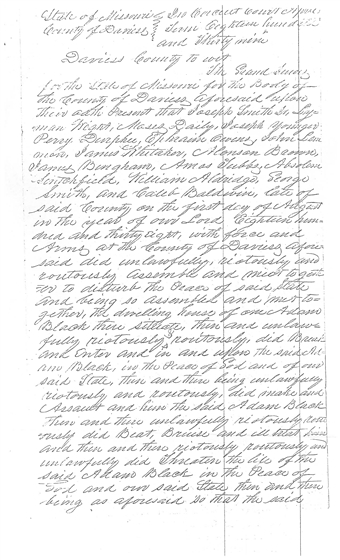 State of Missouri } In Circuit Court April
County of Daviess } Term Eighteen hundred
and thirty nine
Daviess County to wit
The Grand Jurors
for the State of Missouri for the Body of
the County of Daviess aforesaid upon
their oath Present that Joseph Smith Jr, Ly-
man Wight, Moses Daily, Joseph Younger
Perry Durphee, Ephraim Owens, John Lem
mon, James Whitaker, Alanson Brown,
James Bingham, Amos Tubbs, Absolom
William Aldridge, George
Smith, and Caleb Baldwin, late of
said County on the first day of August
in the year of our Lord Eighteen hun
dred and thirty eight, with force and
Arms, at the County of Daviess afore
said did unlawfully, riotously and
routously assemble and meet togeth
er to disturb the Peace of said State
and being so assembled and met to
gether, the dwelling house of one Adam
Black there situate, then and unlaw
fully riotously, routously, did Break
and Enter and in and upon the said Ad
am Black, in the Peace of God and of our
said State, then and there being unlawfully
riotously and routously, did make and
Assault and him the said Adam Black
then and there unlawfully riotously rout
ously did Beat, Bruise and ill treat
and then and there riotously routously and
unlawfully did threaten the life of the
said Adam Black in the Peace of
God and our said State then and there
being as aforesaid so that the said